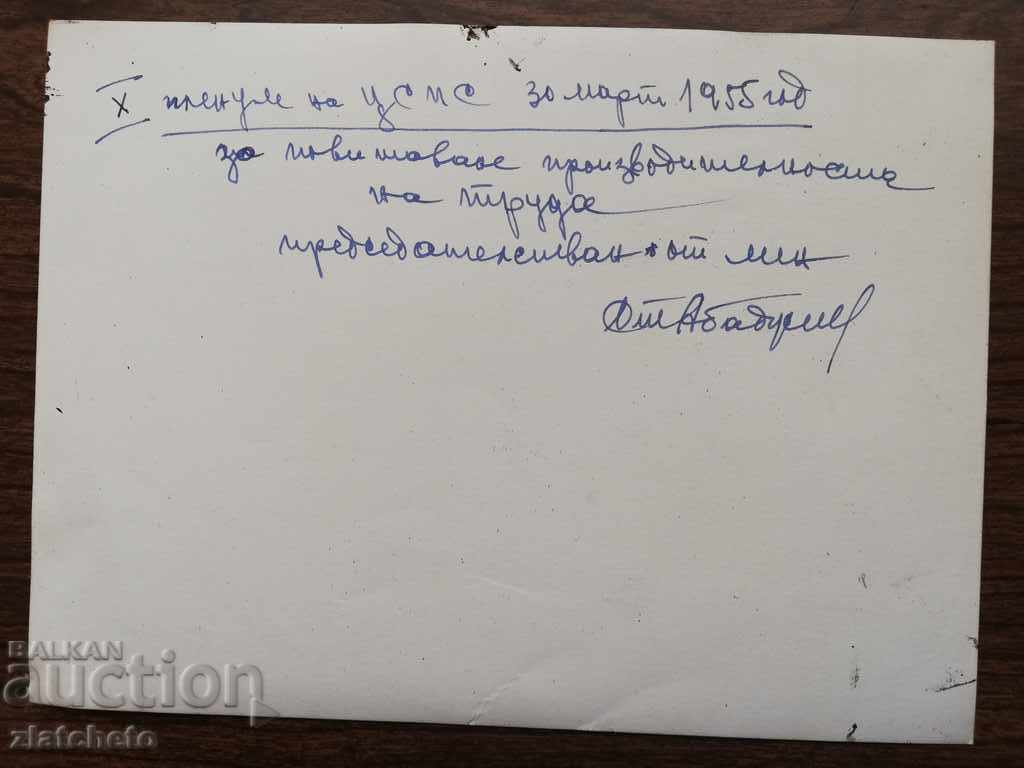 X пленум на ЦСПС 30 март 1955 год
за повишаване производителността
на труда
председателствван от мен
BALKAN
auction
zlatcheto